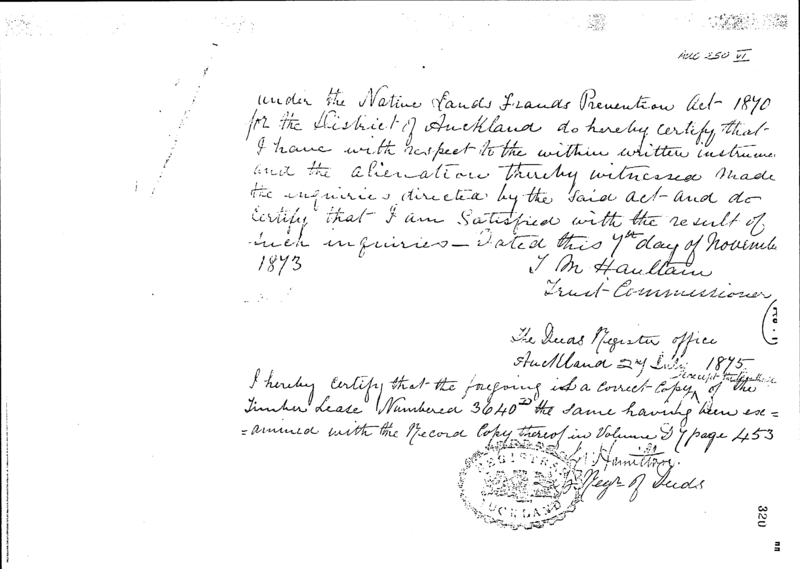 AUC 250 VI
under the Native Lands Frauds Prevention Act 1870
for the District of Auckland do hereby certify that
I have with respect to the within written instrume
and the alienation thereby witnessed made
the inquiries directed by the said act and do
certify that I am satisfied with the result of
such inquiries — Dated this 7th day of Novembe
1873
T M Haultain
Trust Commissioner
The Deeds Register office
Auckland 2nd July 1875
I hereby certify that the foregoing is a correct copy of the
Timber Lease Numbered 3640D the same having been ex=
=amined with the Record Copy thereof in Volume D7 page 453
Hamilton
Regr of Deeds
REGISTRER
AUCKLAND
320